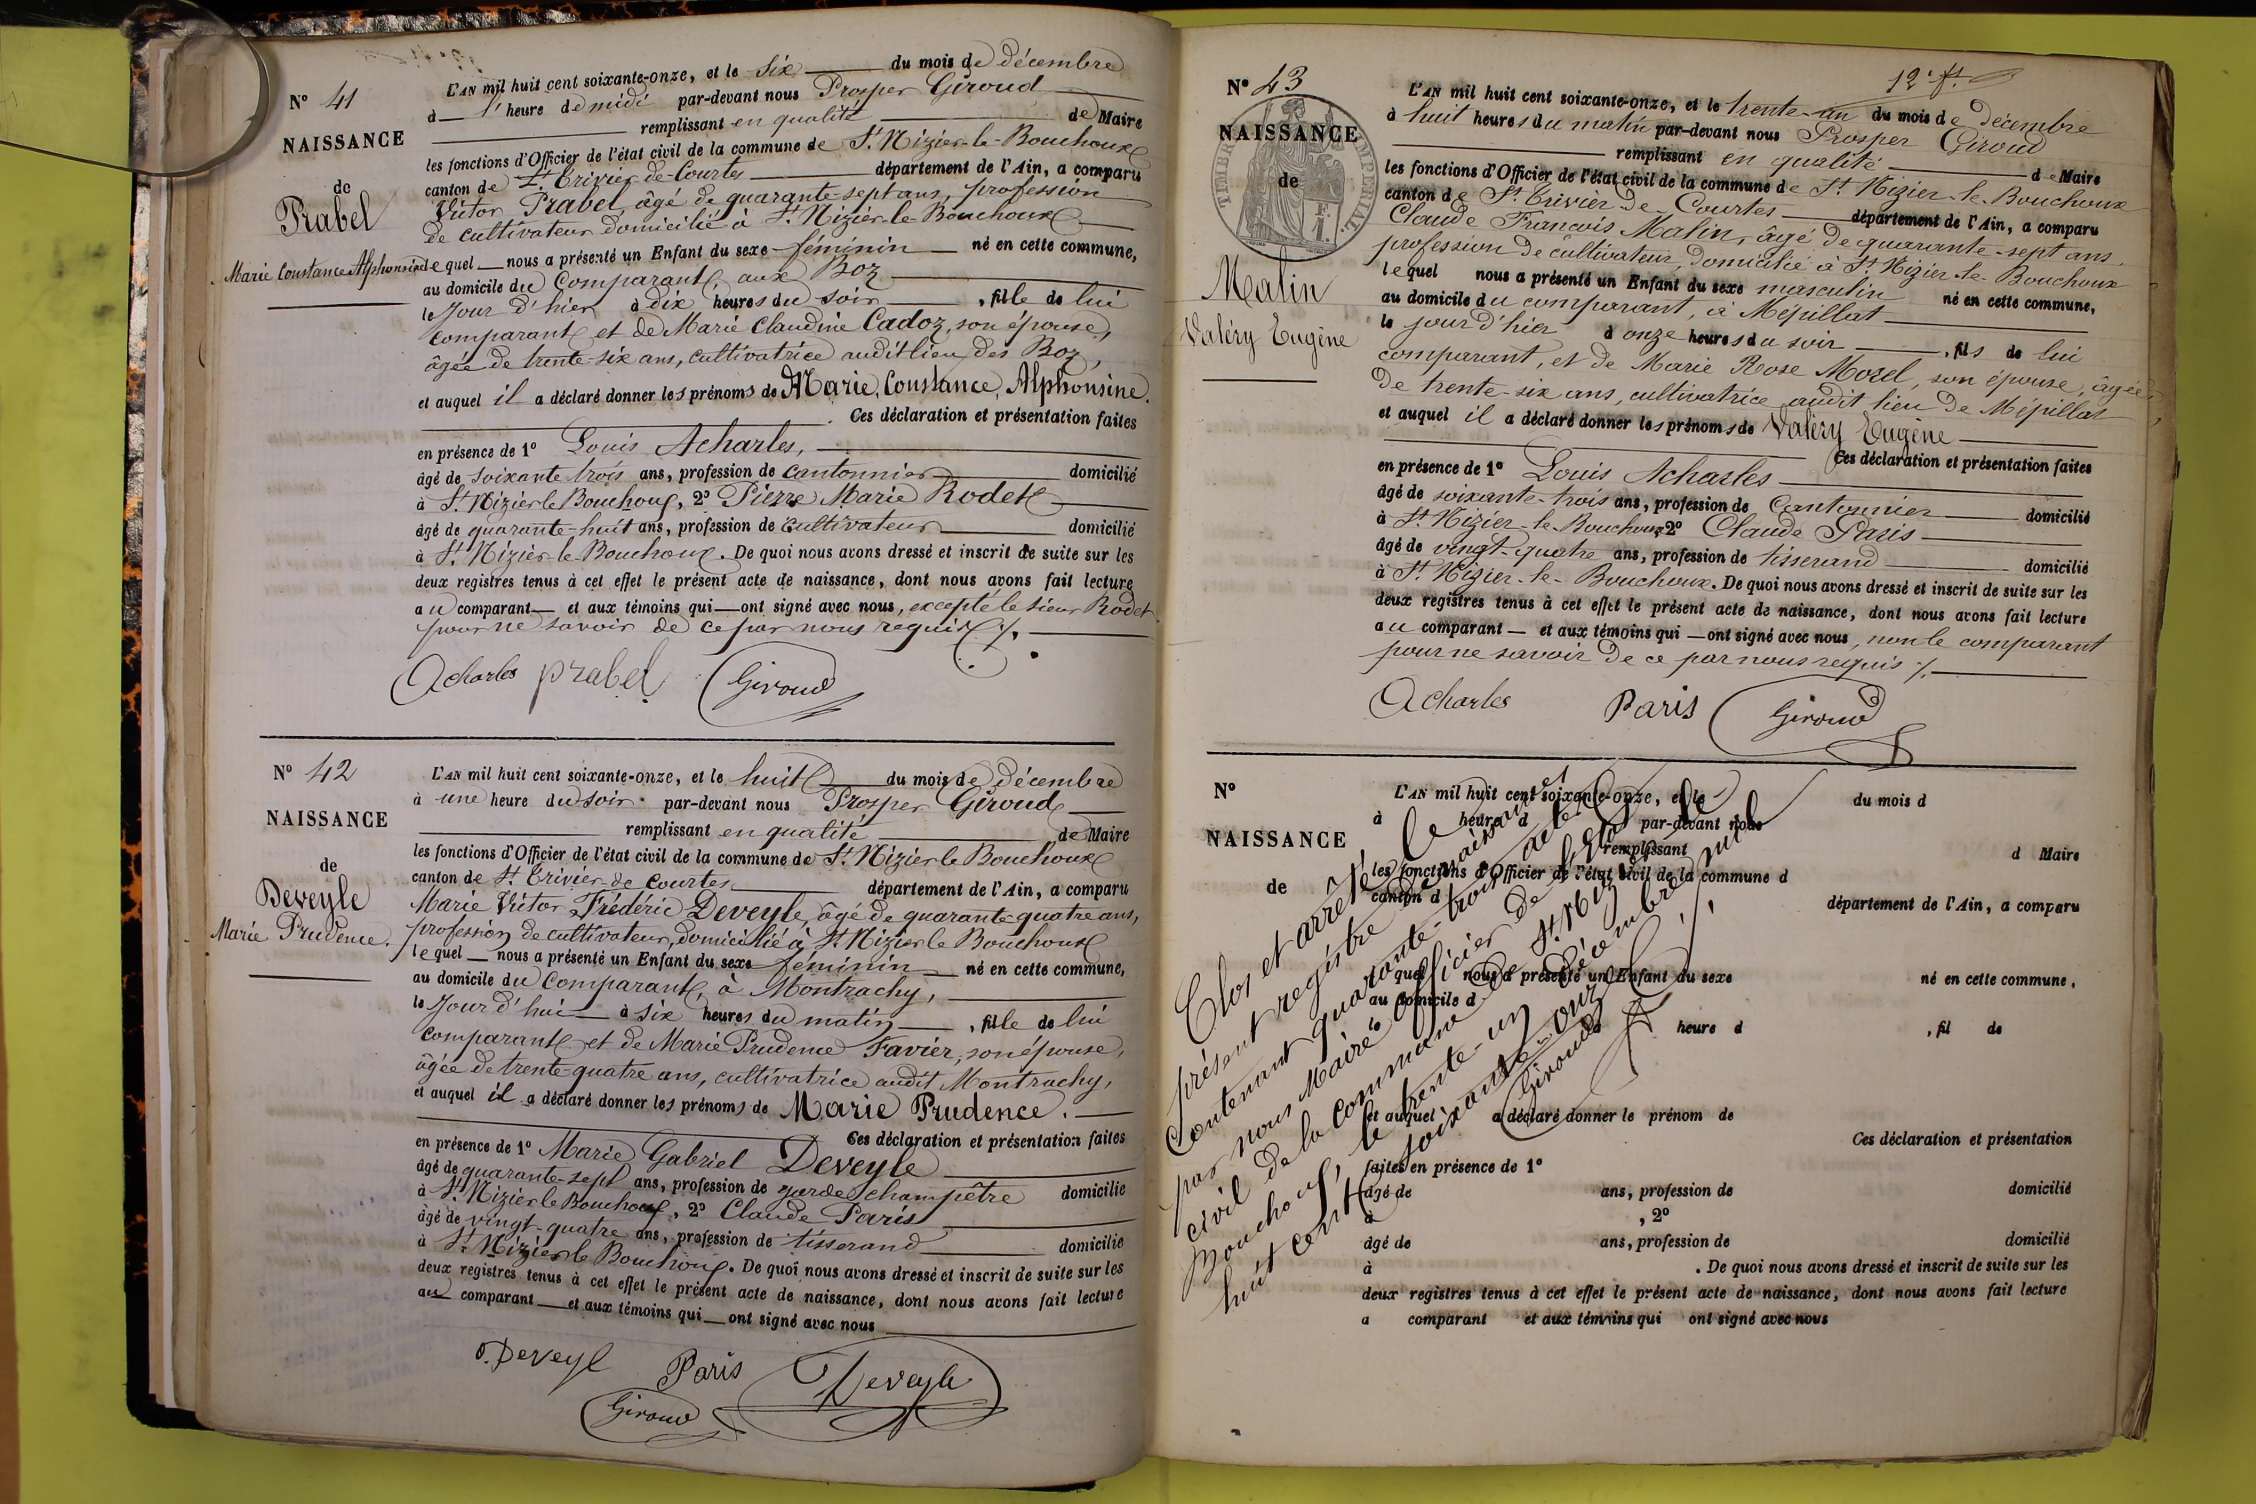 N° 41
NAISSANCE
de
Prabel
Marie Constance Alphonsine
L'AN mil huit cent soixante-onze, et le six du mois de décembre
à l' heure de midi par-devant nous Prosper Giroud
remplissant en qualité de Maire
les fonctions d'Officier de l'état civil de la commune de St Nizier-le-Bouchoux
canton de St Trivier-de-Courtes département de l'Ain, a comparu
Victor Prabel, âgé de quarante-sept ans, profession
de cultivateur domicilié à St Nizier-le-Bouchoux
lequel nous a présenté un Enfant du sexe féminin né en cette commune,
au domicile du comparant, aux Boz
le Jour d'hier à dix heures du soir, fille de lui
comparant et de Marie Claudine Cadoz, son épouse,
âgée de trente-six ans, cultivatrice audit lieu des Boz,
et auquel il a déclaré donner les prénoms de Marie, Constance, Alphonsine.
Ces déclaration et présentation faites
en présence de 1° Louis Acharles,
âgé de soixante trois ans, profession de cantonnier domicilié
à St Nizier le Bouchoux, 2° Pierre Marie Rodet
âgé de quarante-huit ans, profession de cultivateur domicilié
à St Nizier-le-Bouchoux. De quoi nous avons dressé et inscrit de suite sur les
deux registres tenus à cet effet le présent acte de naissance, dont nous avons fait lecture
au comparant et aux témoins qui ont signé avec nous, excepté le sieur Rodet
pour ne savoir de ce par nous requis /.
Acharles Prabel Giroud
N° 42
NAISSANCE
de
Deveyle
Marie Prudence.
L'AN mil huit cent soixante-onze, et le huit du mois de décembre
à une heure du soir par-devant nous Prosper Giroud
remplissant en qualité de Maire
les fonctions d'Officier de l'état civil de la commune de St Nizier le Bouchoux
canton de St Trivier-de-Courtes département de l'Ain, a comparu
Marie Victor Frédéric Deveyle, âgé de quarante-quatre ans,
profession de cultivateur, domicilié à St Nizier le Bouchoux
lequel nous a présenté un Enfant du sexe féminin né en cette commune,
au domicile du comparant, à Montrachy,
le Jour d'hui à six heures du matin, fille de lui
comparant et de Marie Prudence Favier, son épouse,
âgée de trente-quatre ans, cultivatrice audit Montrachy,
et auquel il a déclaré donner les prénoms de Marie Prudence.
Ces déclaration et présentation faites
en présence de 1° Marie Gabriel Deveyle
âgé de quarante-sept ans, profession de garde champêtre domicilié
à St Nizier le Bouchoux, 2° Claude Paris
âgé de vingt-quatre ans, profession de tisserand domicilié
à St Nizier le Bouchoux. De quoi nous avons dressé et inscrit de suite sur les
deux registres tenus à cet effet le présent acte de naissance, dont nous avons fait lecture
au comparant et aux témoins qui ont signé avec nous
Deveyl Paris Deveyle
Giroud
12e ft.
N° 43
NAISSANCE
de
TIMBRE IMPERIAL
Malin
Valéry Eugène
L'AN mil huit cent soixante-onze, et le trente-un du mois de décembre
à huit heures du matin par-devant nous Prosper Giroud
remplissant en qualité de Maire
les fonctions d'Officier de l'état civil de la commune de St Nizier-le-Bouchoux
canton de St Trivier de-Courtes département de l'Ain, a comparu
Claude François Malin, âgé de quarante-sept ans,
profession de cultivateur, domicilié à St Nizier-le-Bouchoux
lequel nous a présenté un Enfant du sexe masculin né en cette commune,
au domicile du comparant, à Mépillat
le jour d'hier à onze heures du soir, fils de lui
comparant, et de Marie Rose Morel, son épouse, âgée
de trente-six ans, cultivatrice audit lieu de Mépillat,
et auquel il a déclaré donner les prénoms de Valéry Eugène
Ces déclaration et présentation faites
en présence de 1° Louis Acharles
âgé de soixante-trois ans, profession de Cantonnier domicilié
à St Nizier-le-Bouchoux, 2° Claude Paris
âgé de vingt-quatre ans, profession de tisserand domicilié
à St Nizier-le-Bouchoux. De quoi nous avons dressé et inscrit de suite sur les
deux registres tenus à cet effet le présent acte de naissance, dont nous avons fait lecture
au comparant et aux témoins qui ont signé avec nous, non le comparant
pour ne savoir de ce par nous requis /.
Acharles Paris Giroud
N°
NAISSANCE
de
L'AN mil huit cent soixante-onze, et le du mois d
à heure d par-devant nous
remplissant d Maire
les fonctions d'Officier de l'état civil de la commune d
canton d département de l'Ain, a comparu
quel nous a présenté un Enfant du sexe né en cette commune,
au domicile d
le à heure d , fil de
et auquel a déclaré donner le prénom de
Ces déclaration et présentation
faites en présence de 1°
âgé de ans, profession de domicilié
à , 2°
âgé de ans, profession de domicilié
à . De quoi nous avons dressé et inscrit de suite sur les
deux registres tenus à cet effet le présent acte de naissance, dont nous avons fait lecture
a comparant et aux témoins qui ont signé avec nous
Clos et arrêté le
présent registre de naissances
contenant quarante-trois actes
par nous Maire et officier de l'état
civil de la commune de St Nizier le
Bouchoux, le trente-un décembre mil
huit cent soixante onze /.
Giroud